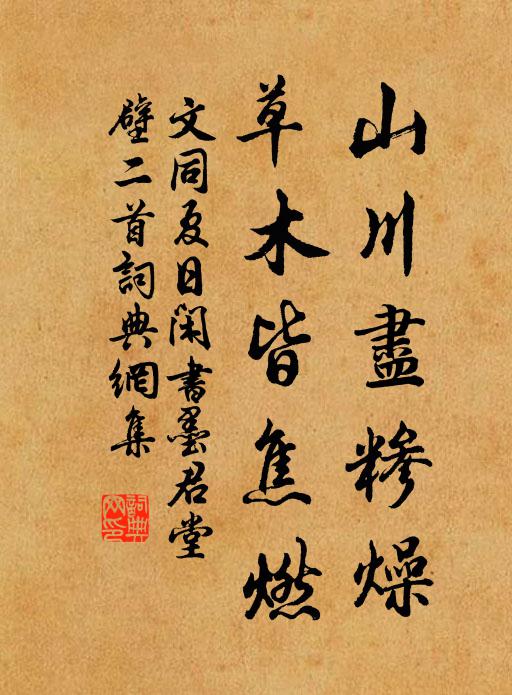 山川盡糝燥
草木皆焦燃
文同夏日闲書墨君堂
壁二首詞典網集
詞典
网印